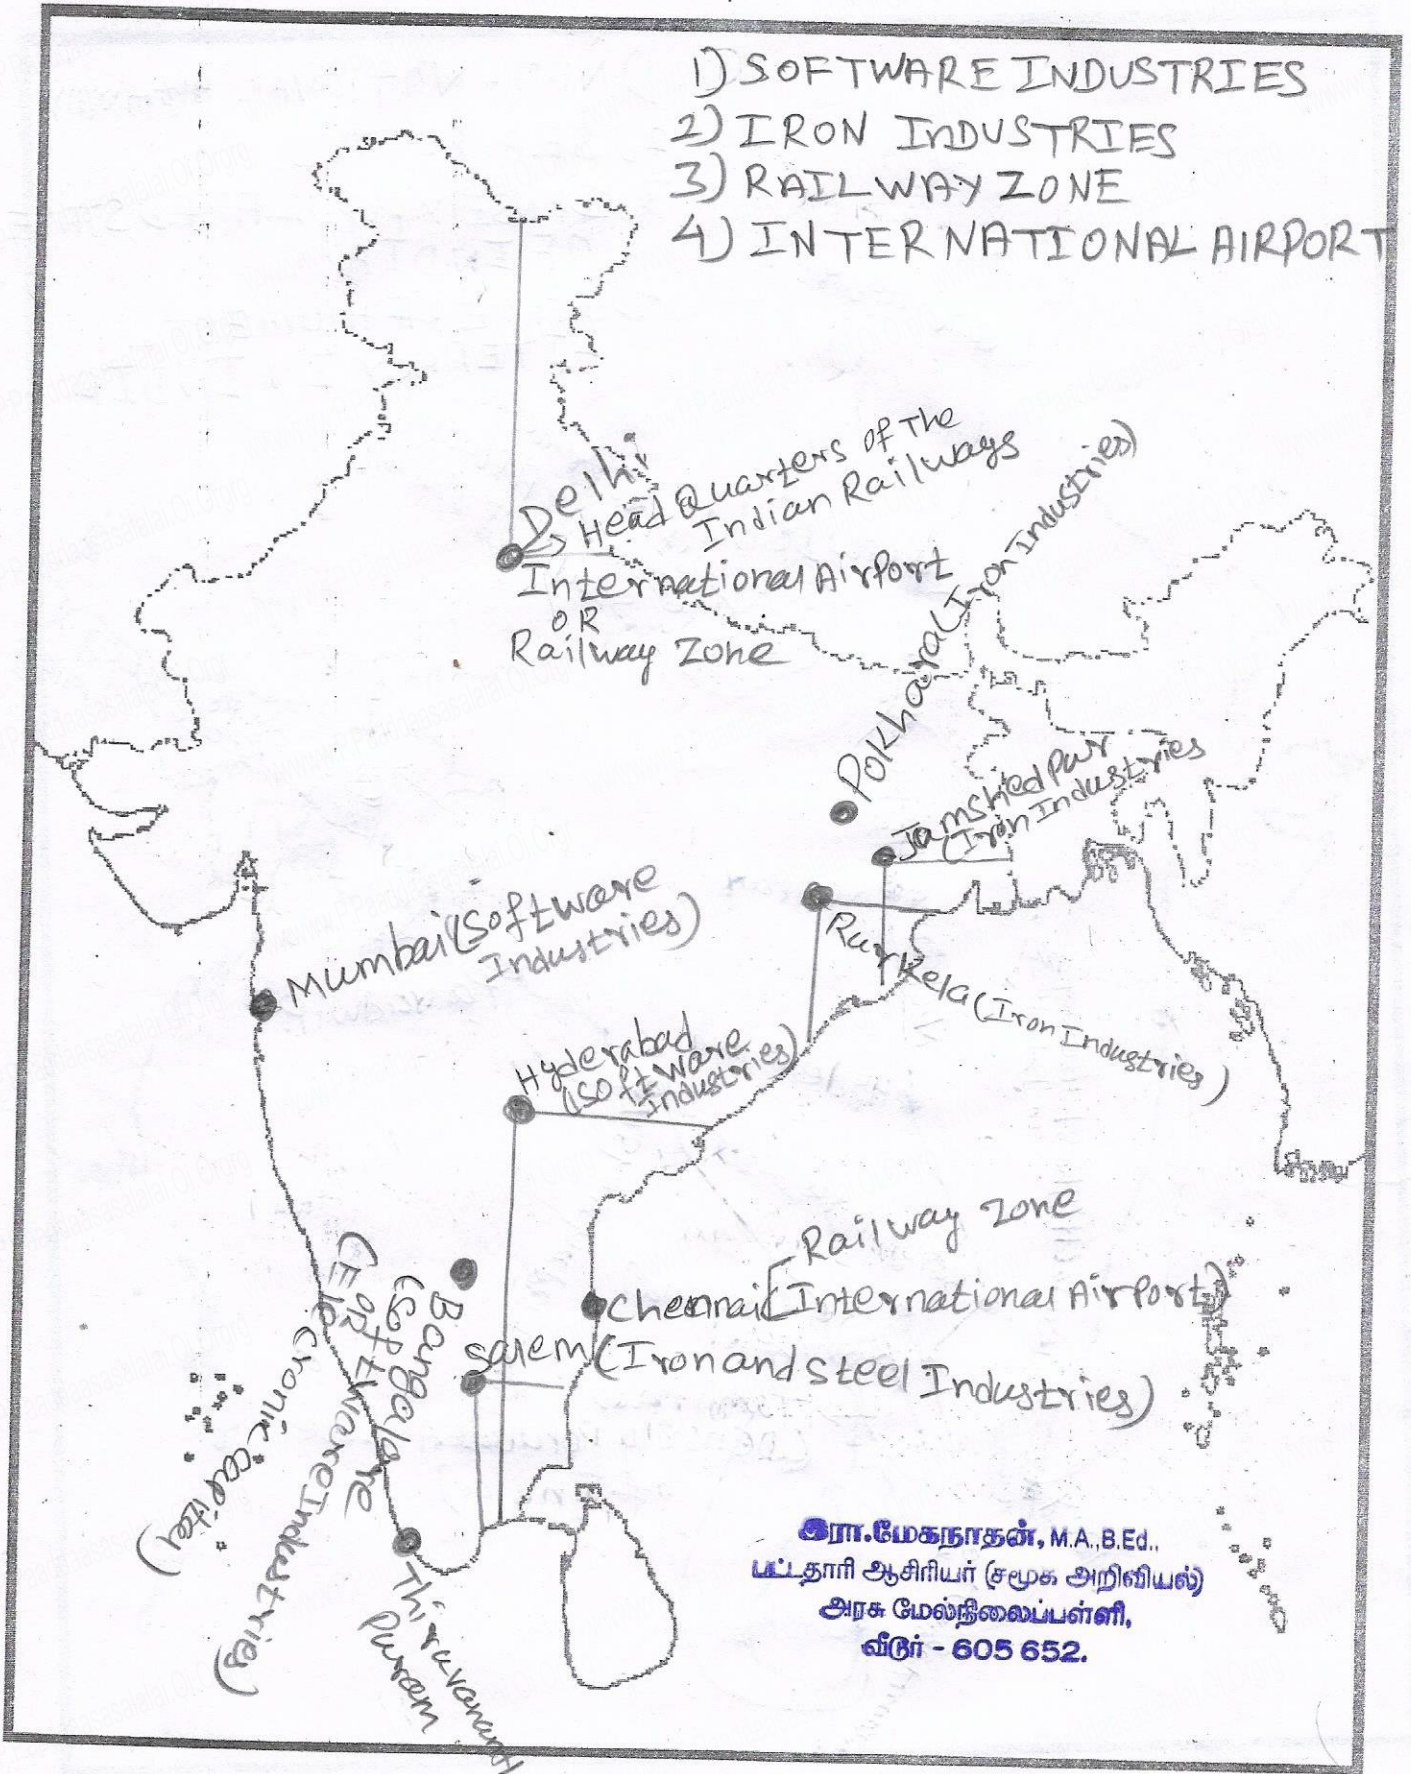 1) SOFTWARE INDUSTRIES
2) IRON INDUSTRIES
3) RAILWAY ZONE
4) INTERNATIONAL AIRPORT
Delhi
Head Quarters of The
Indian Railways
International Airport
OR
Railway Zone
Pokhara (Iron Industries)
Jamshed Pur
(Iron Industries
Rurkela (Iron Industries)
Mumbai (Software
Industries)
Hyderabad
(Software
industries)
Railway zone
Chennai (International Airport)
Salem (Iron and Steel Industries)
Bangalore
(Software Industries)
(Electronic capital)
Thiruvananth
Puram
இரா.மேகநாதன், M.A.,B.Ed.,
பட்டதாரி ஆசிரியர் (சமூக அறிவியல்)
அரசு மேல்நிலைப்பள்ளி,
வீடூர் - 605 652.